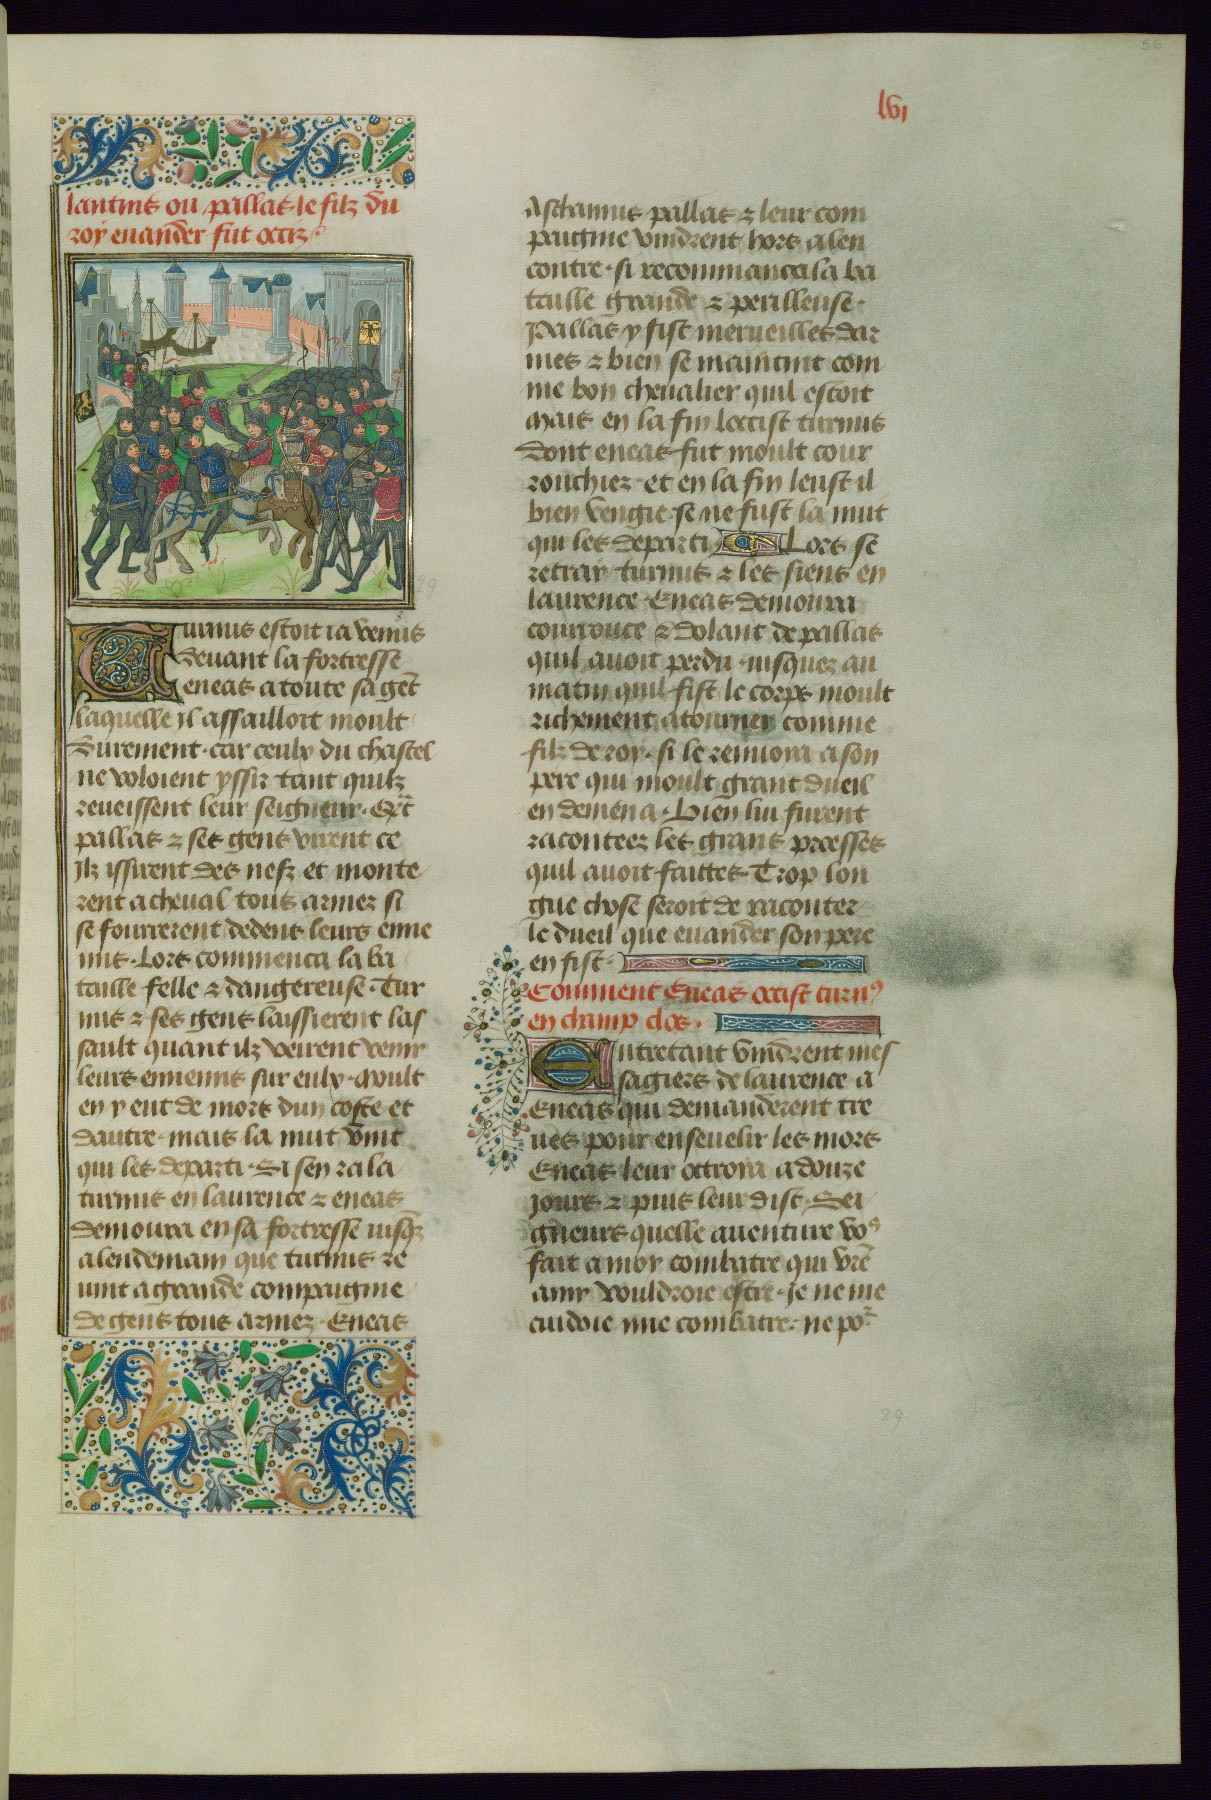 56
lvi
lantins ou pallas le filz du
roy euander fut occiz
Turnus estoit ia venus
deuant la fortresse
eneas a toute sa gēt
laquelle il assailloit moult
durement. car ceulx du chastel
ne voloient yssir tant quilz
reueissent leur seigneur. Qñt
pallas ⁊ ses gens virent ce
Ilz issirent des nefz et monte
rent a cheual tous armez si
se fourrerent dedens leurs enne
mis. Lors commenca la ba
taille felle ⁊ dangereuse. Tur
nus ⁊ ses gens laissierent las
sault quant ilz veirent venir
leurs ennemis sur eulx. moult
en y eut de mors dun coste et
dautre. mais la nuit vint
qui les departi. Si sen rala
turnus en laurence ⁊ eneas
demoura en sa fortresse iusqz
alendemain que turnus re
uint a grande compaignie
de gens tous armez. Eneas
Aschanius pallas ⁊ leur com
paignie vindrent hors a len
contre. si recommanca la ba
taille grande ⁊ perilleuse.
Pallas y fist merueilles dar
mes ⁊ bien se maintint com
me bon cheualier quil estoit
Mais en la fin loccist turnus
dont eneas fut moult cour
rouchiez. et en la fin leust il
bien vengie. se ne fust la nuit
qui les departi. Lors se
retray turnus ⁊ les siens en
laurence. Eneas demoura
courrouce ⁊ dolant de pallas
quil auoit perdu. iusquez au
matin quil fist le corps moult
richement atourner comme
filz de roy. si le renuoia a son
pere qui moult grant dueil
en demena. Bien lui furent
racontees les grans proesses
quil auoit faittes. Trop lon
gue chose seroit de raconter
le dueil que euander son pere
en fist.
Comment Eneas occist turn⁹
en champ clos.
Entretant vindrent mes
sagiers de laurence a
Eneas qui demanderent tre
ues pour enseuelir les mors
Eneas leur octroia a douze
jours ⁊ puis leur dist. Sei
gneurs quelle auenture vo⁹
fait a moy combatre qui vr̄e
amy vouldroie estre. Je ne me
cuidoie mie combatre. ne po͛
29